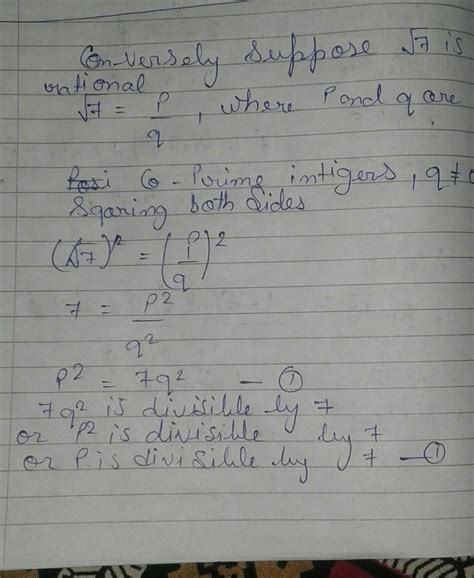 Con-versely suppose √7 is
rational
√7 = p/q, where P and q are
Co-Prime intigers, q ≠ 0
Sqaring both Sides
(√7)² = (p/q)²
7 = p²/q²
p² = 7q² — ①
7q² is divisible by 7
or p² is divisible by 7
or P. is divisible by 7 — ①